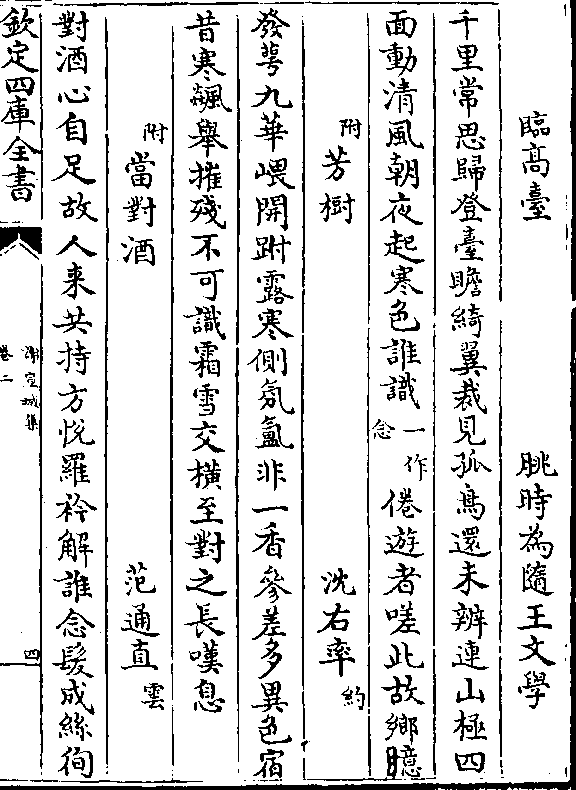 臨髙臺　朓時為隨王文學
千里常思歸登臺瞻綺翼裁見孤鳥還未辨連山極四
面動清風朝夜起寒色誰識一作念倦遊者嗟此故鄉臆
附芳樹　沈右率約
發萼九華嵔開跗露寒側氛氳非一香參差多異色宿
昔寒飇舉摧殘不可識霜雪交橫至對之長嘆息
附當對酒　范通直雲
對酒心自足故人来共持方悅羅衿解誰念髮成絲徇
欽定四庫全書
謝宣城集
卷二
四